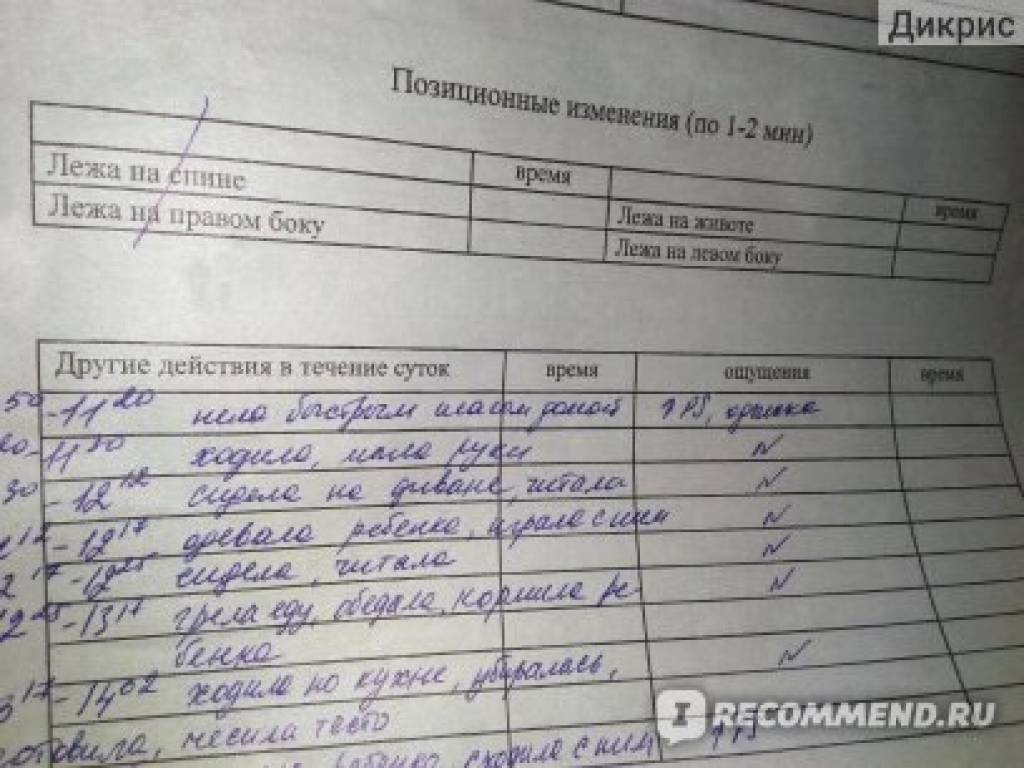 Дикрис
Позиционные изменения (по 1-2 мин)
время
время
Лежа на спине
Лежа на животе
Лежа на правом боку
Лежа на левом боку
Другие действия в течение суток время ощущения время
50 -11 20 шла быстрым шагом домой ↑PS, одышка
20 -11 30 ходила, мыла руки N
30 -12 12 сидела на диване, читала N
12 -12 17 одевала ребенка, играла с ним N
17 -12 25 сидела, читала N
12 25 -13 17 грела еду, обедала, кормила ре- N
бенка
17 -14 02 ходила по кухне, убиралась, N
готовила, месила тесто
ребенка, сходила с ним ↑PS
IRECOMMEND.RU